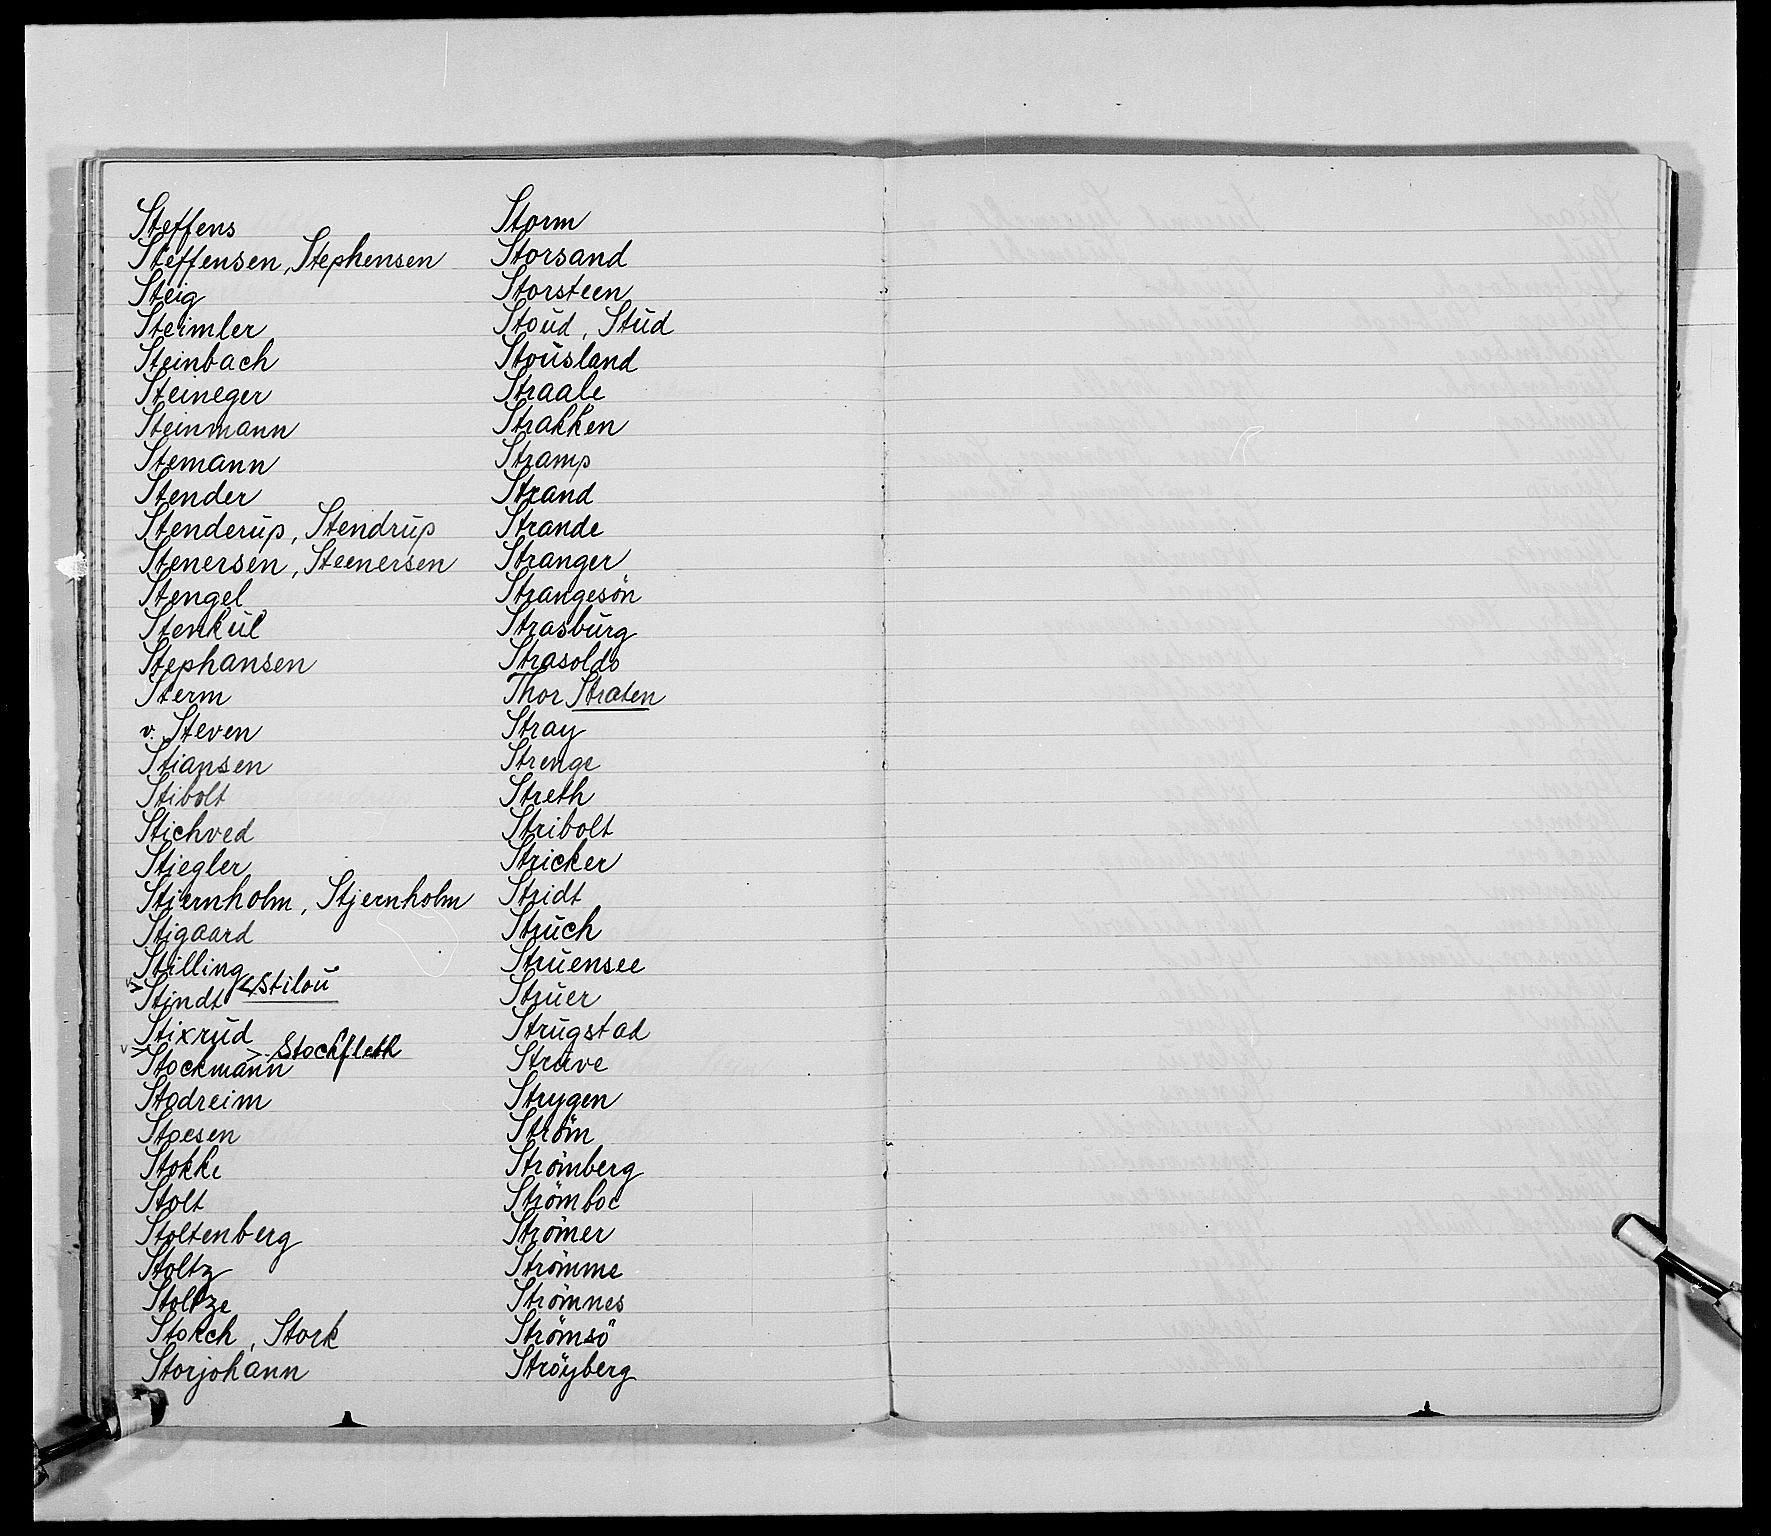 Steffens
Steffensen, Stephensen
Steig
Steimler
Steinbach
Steineger
Steinmann
Stemann
Stender
Stenderup, Stendrup
Stenersen, Steenersen
Stengel
Stenkul
Stephansen
Sterm
v. Steven
Stiansen
Stibolt
Stichved
Stiegler
Stiernholm, Stjernholm
Stigaard
Stilling
Stilou
Stindt
Stixrud
Stockfleth
Stockmann
Stodreim
Stoesen
Stokke
Stolt
Stoltenberg
Stoltz
Stoltze
Storch, Stork
Storjohann
Storm
Storsand
Storsteen
Stoud, Stud
Stousland
Straale
Strakken
Stramp
Strand
Strande
Stranger
Strangesön
Strasburg
Strasoldo
Thor Straten
Stray
Strenge
Streth
Stribolt
Stricker
Stridt
Struch
Struensee
Struer
Strugstad
Struve
Strygen
Ström
Strömberg
Strömboe
Strömer
Strömme
Strömnes
Strömsö
Ströyberg